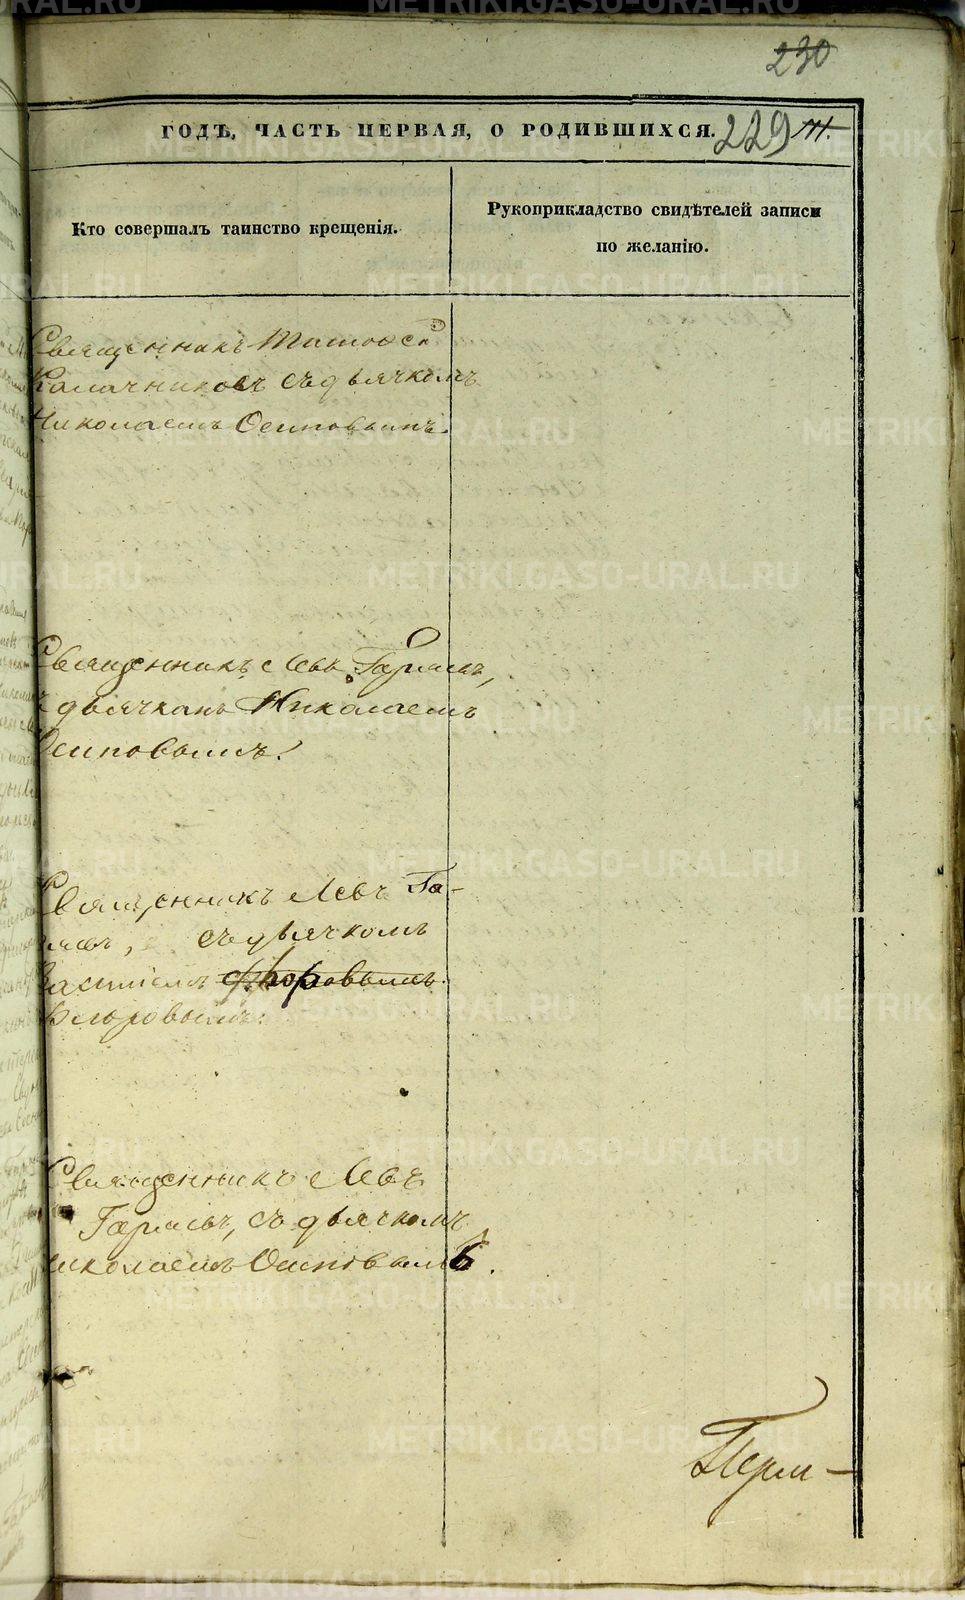 230
ГОДѢ, ЧАСТЬ ПЕРВАЯ, О РОДИВШИХСЯ. 229
Кто совершалъ таинство крещенія.
Рукоприкладство свидѣтелей записи
по желанію.
Священникъ
Калачниковъ съ дьячкомъ
Николаемъ Осиповымъ.
Священникъ Левъ Гаряевъ,
съ дьячкомъ Николаемъ
Осиповымъ.
Священникъ Левъ Га-
ряевъ, съ дьячкомъ
Егоровымъ.
Священникъ Левъ
Гаряевъ, съ дьячкомъ
Николаемъ Осиповымъ.
Перм-
METRIKI.GASO-URAL.RU